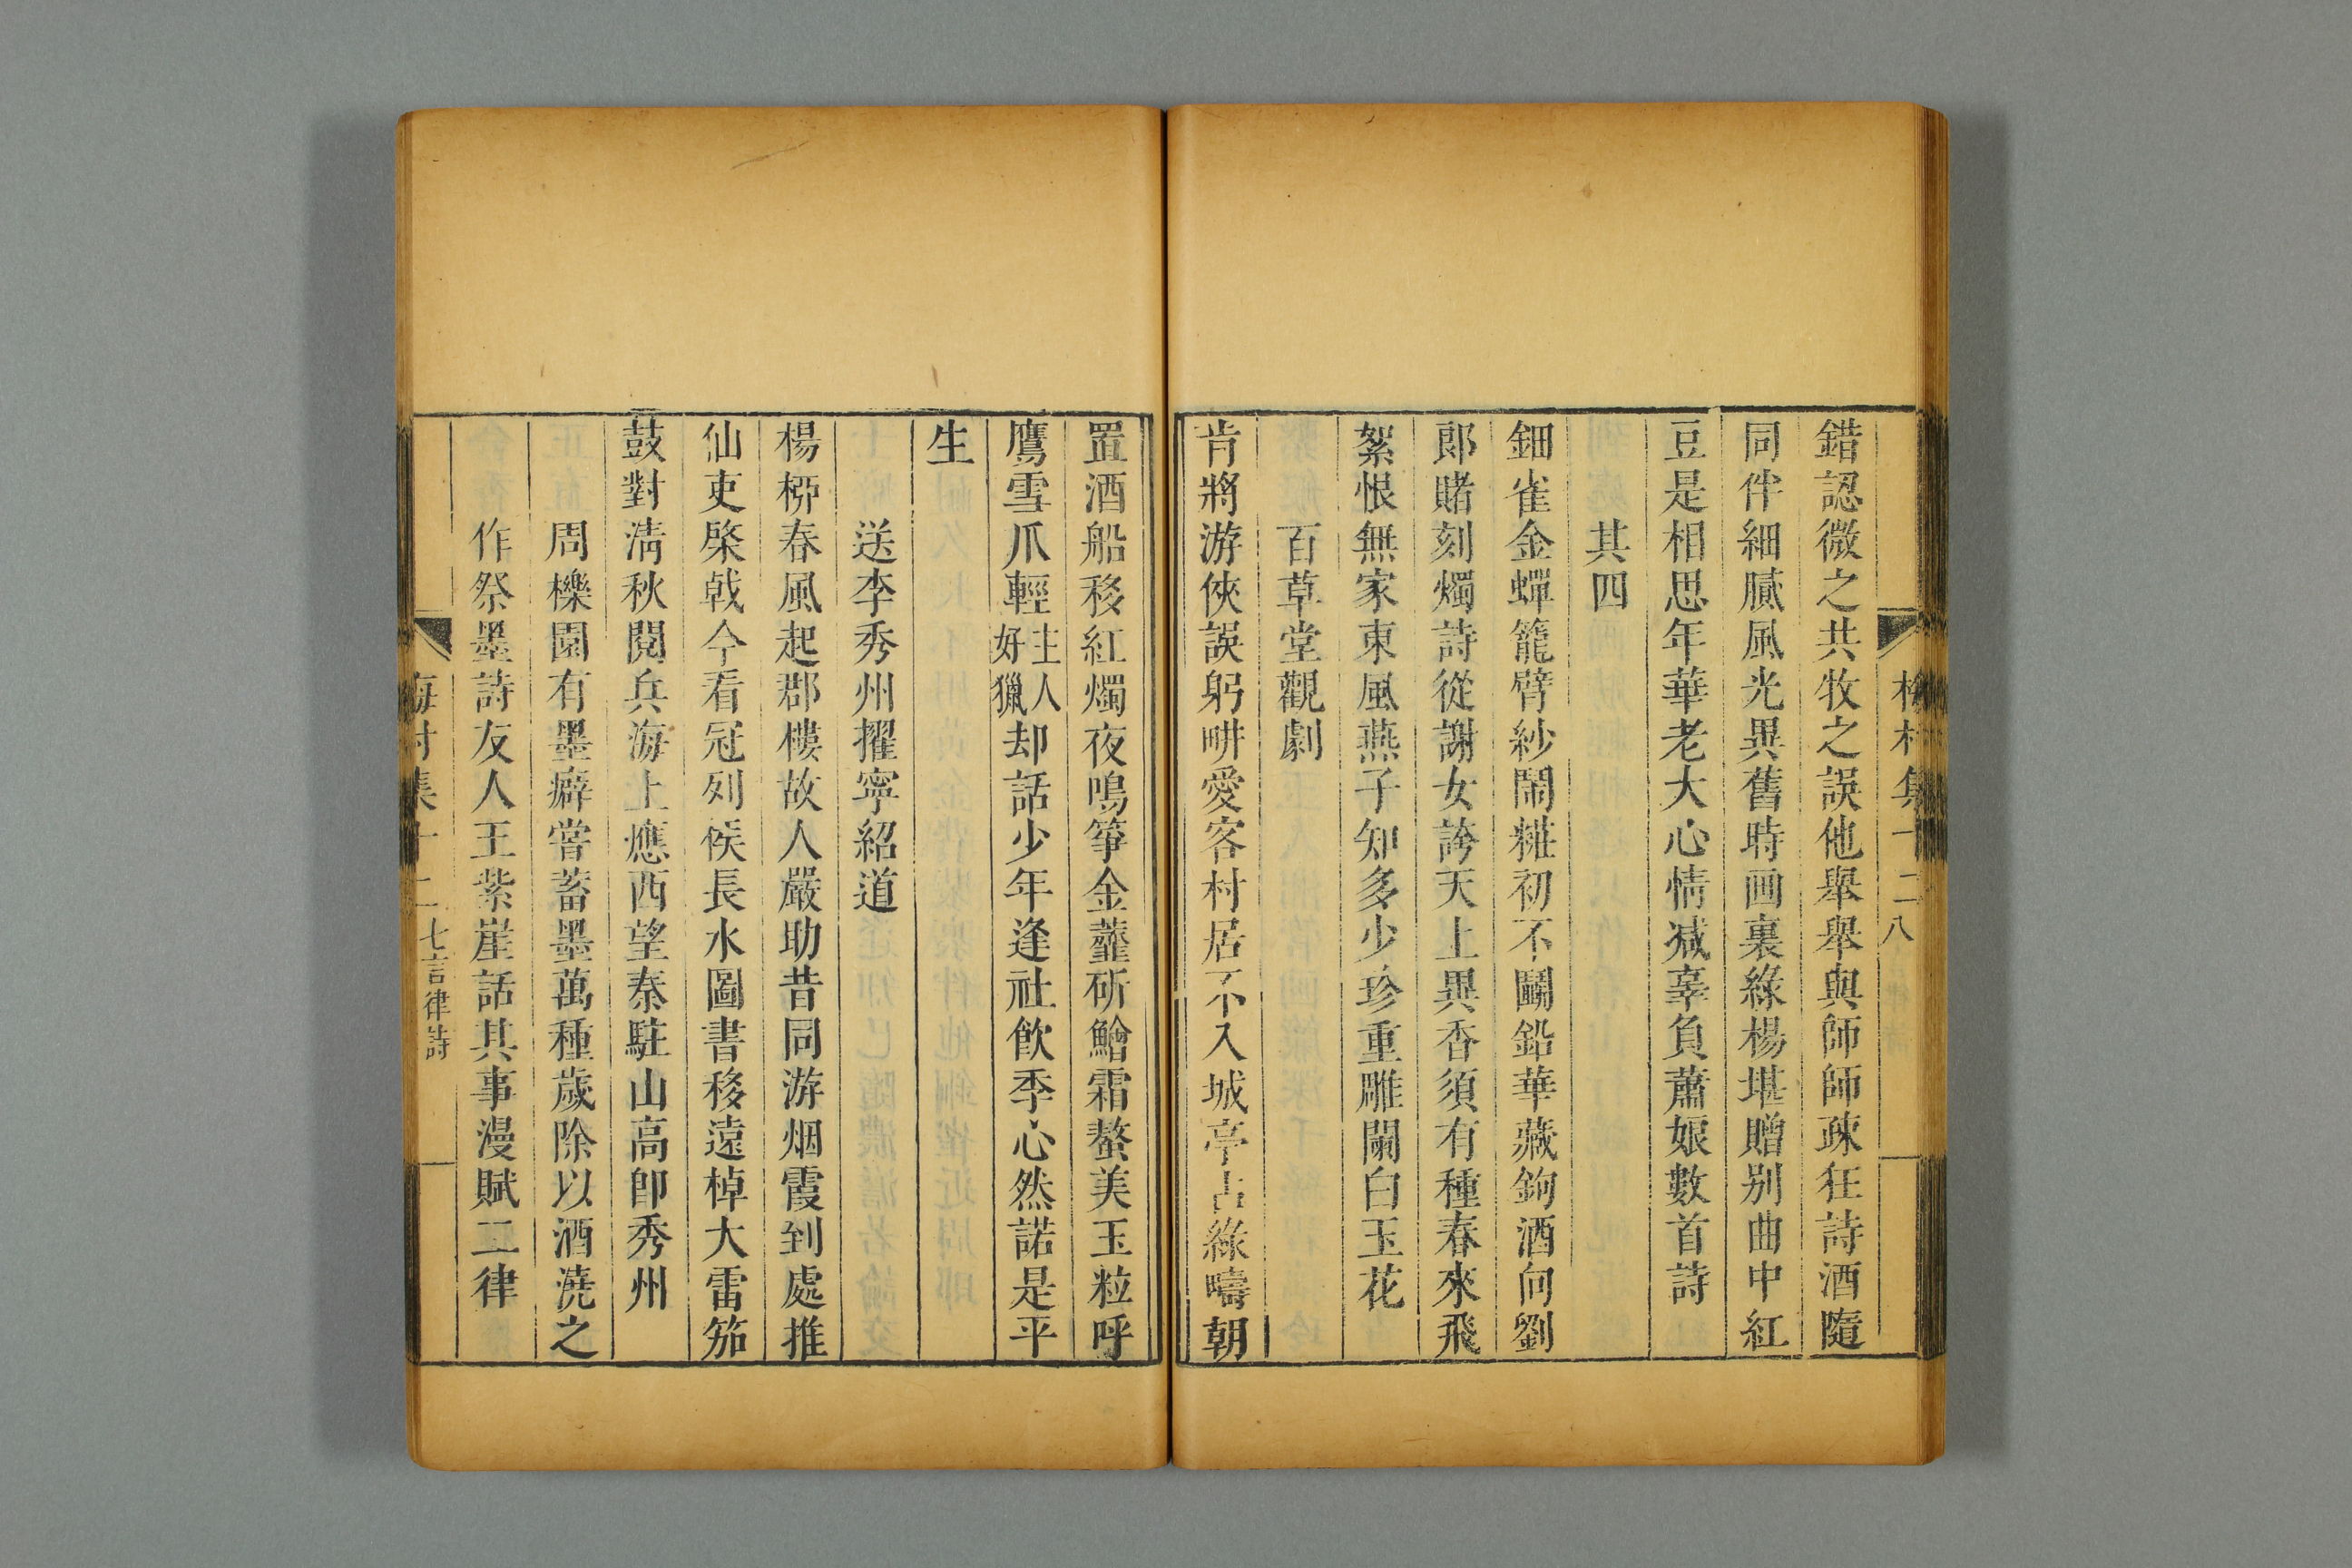 梅村集十二 八
錯認微之共牧之誤他舉舉與師師疎狂詩酒隨
同伴細膩風光異舊時画裏綠楊堪贈别曲中紅
豆是相思年華老大心情减辜負蕭娘數首詩
其四
鈿雀金蟬籠臂紗鬧糚初不鬭鉛華藏鉤酒向劉
郎賭刻燭詩從謝女誇天上異香須有種春來飛
絮恨無家東風燕子知多少珍重雕闌白玉花
百草堂觀劇
肯將游俠誤躬畊愛客村居不入城亭占綠疇朝
置酒船移紅燭夜鳴箏金虀斫鱠霜螯美玉粒呼
鷹雪爪輕主人好獵却話少年逢社飲季心然諾是平
生
送李秀州擢寧紹道
楊桺春風起郡樓故人嚴助昔同游烟霞到處推
仙吏棨戟今看冠列侯長水圖書移遠棹大雷笳
鼓對淸秋閱兵海上應西望秦駐山高卽秀州
周櫟園有墨癖嘗蓄墨萬種歲除以酒澆之
作祭墨詩友人王紫崖話其事漫賦二律
梅村集十二 七言律詩